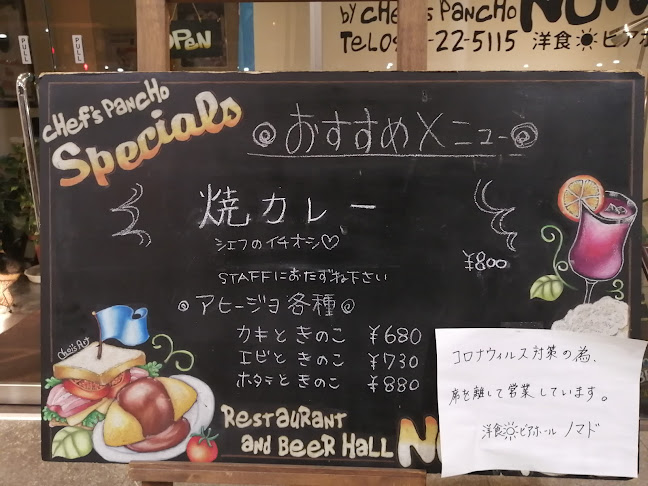 PULL
OPEN
PULL
by CHEF'S PANCHO
22-5115 洋食☀ビアホ
CHEF'S PANCHO
Specials
おすすめメニュー
焼カレー
シェフのイチオシ♡
¥800
STAFFにおたずね下さい
アヒージョ各種
カキときのこ ¥680
エビときのこ ¥730
ホタテときのこ ¥880
RESTAURANT
AND BEER HALL
コロナウィルス対策の為、
席を離して営業しています。
洋食☀ビアホール ノマド